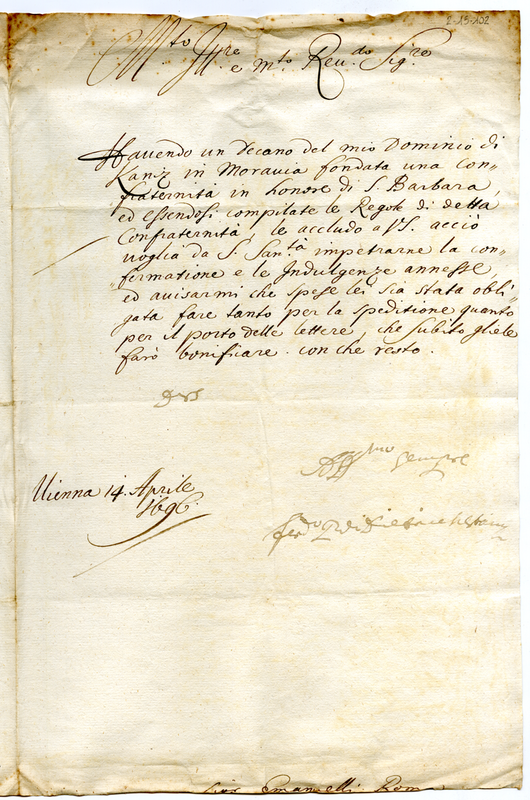 2-15-102
M:to Ill:re e m:to Reu:do Sig:re
Hauendo un Decano del mio Dominio di
Kaniz in Moravia fondata una con=
fraternità in honore di S. Barbara,
ed essendosi compilate le Regole di detta
Confraternità, le accludo a VS. acciò
voglia da S. San:tà impetrarne la con=
firmatione e le Indulgenze annesse,
ed auisarmi che spese lei sia stata obli=
gata fare tanto per la speditione quanto
per il porto delle lettere, che subito gliele
farò bonificare. con che resto.
Aff:mo sempre
Vienna 14. Aprile
1696.
Ferd:o
Sior Emanelli Rom